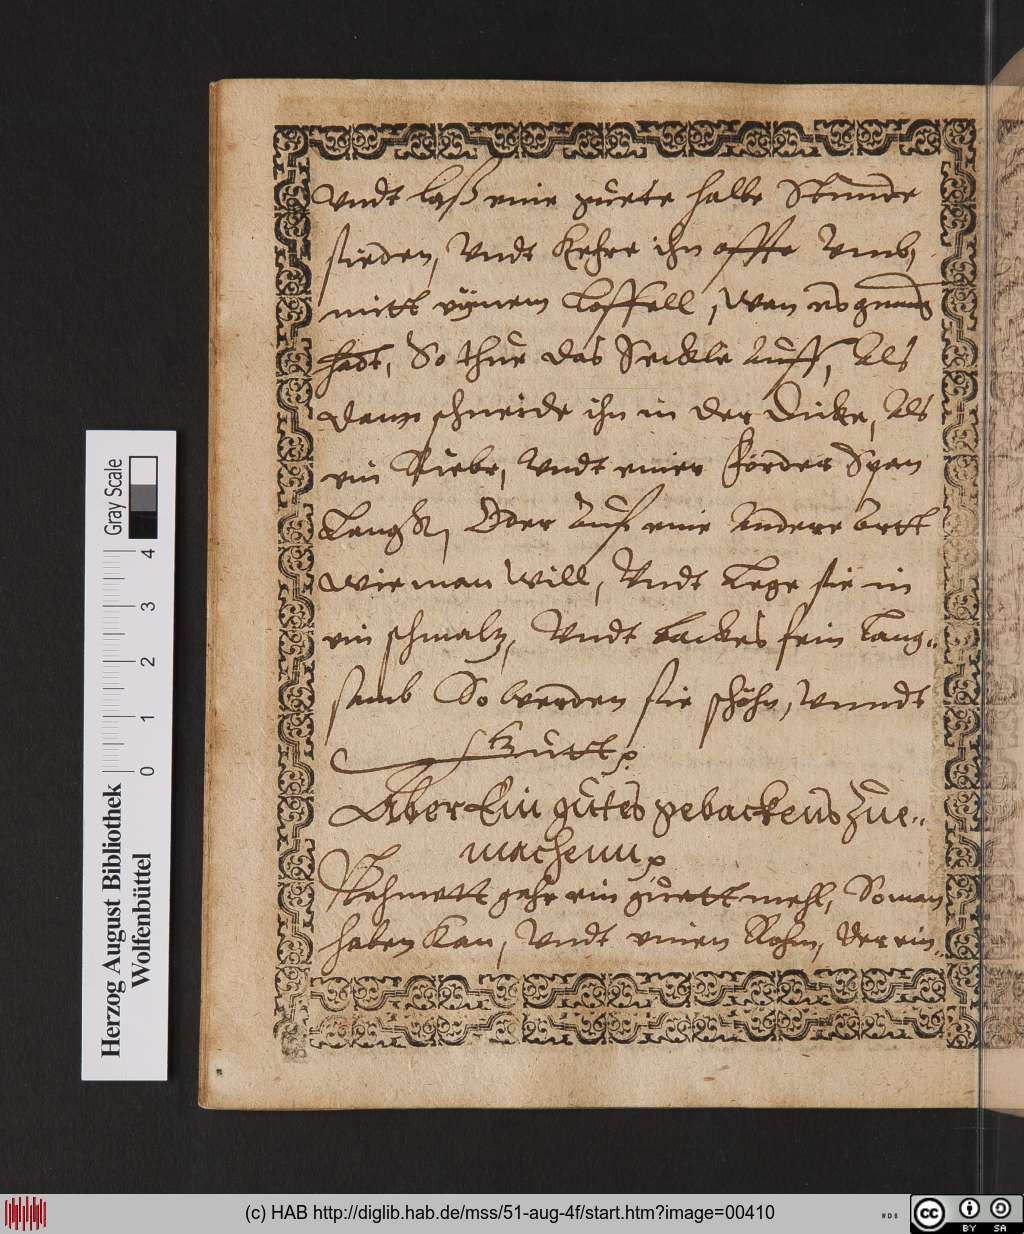 Vndt laß eine guete halbe Stunde
sieden, Vndt Kehre ihn offte Vmb,
mitt eÿnem Loffell, Wan es genueg
hatt, So thue das Seckle Auff, Als
dann schneide ihn in der Dicke, Als
ein Riebe, Vndt einer Forder Span
Lang, Oder Auf eine Andere Artt
wie man Will, Vndt Lege sie in
ein schmaltz, Vndt backes fein Lang=
samb So werden sie schöhn, Vnndt
gutt
Aber Ein gutes gebackens zue=
machenn
Nehmett gahr ein guett mehl, So man
haben Kan, Vndt einen Rohm, der ein=
Gray Scale
4
3
2
1
0
Herzog August Bibliothek
Wolfenbüttel
(c) HAB http://diglib.hab.de/mss/51-aug-4f/start.htm?image=00410
WDB
cc
BY SA